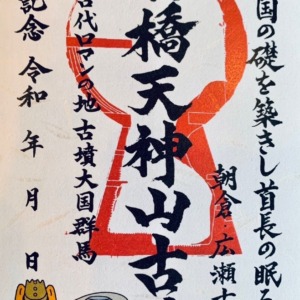 国の礎を築きし首長の眠る
朝倉・広瀬古
橋天神山古
古代ロマンの地 古墳大国群馬
記念 令和 年 月 日